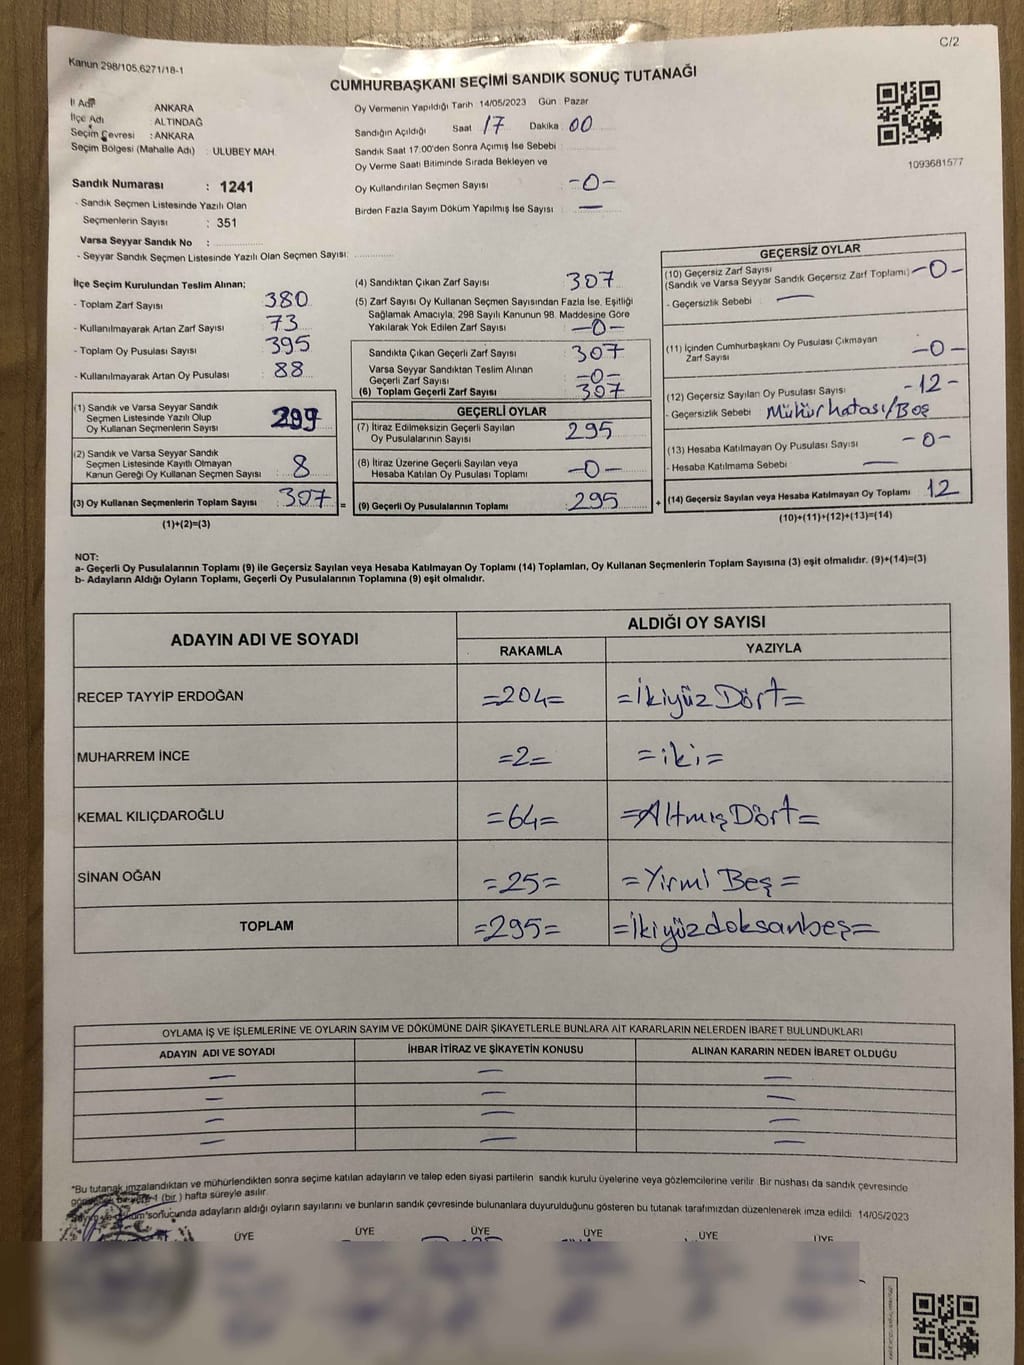 C/2
Kanun 298/105,6271/18-1
CUMHURBAŞKANI SEÇİMİ SANDIK SONUÇ TUTANAĞI
İl Adı ANKARA
İlçe Adı ALTINDAĞ
Seçim Çevresi : ANKARA
Seçim Bölgesi (Mahalle Adı) : ULUBEY MAH.
Oy Vermenin Yapıldığı Tarih 14/05/2023 Gün Pazar
Sandığın Açıldığı Saat 17 Dakika 00
Sandık Saat 17:00'den Sonra Açımış İse Sebebi :
Oy Verme Saati Bitiminde Sırada Bekleyen ve
Oy Kullandırılan Seçmen Sayısı -0-
Birden Fazla Sayım Döküm Yapılmış İse Sayısı —
1093681577
Sandık Numarası : 1241
- Sandık Seçmen Listesinde Yazılı Olan
Seçmenlerin Sayısı : 351
Varsa Seyyar Sandık No :
- Seyyar Sandık Seçmen Listesinde Yazılı Olan Seçmen Sayısı:
İlçe Seçim Kurulundan Teslim Alınan;
- Toplam Zarf Sayısı 380
- Kullanılmayarak Artan Zarf Sayısı 73
- Toplam Oy Pusulası Sayısı 395
- Kullanılmayarak Artan Oy Pusulası 88
(1) Sandık ve Varsa Seyyar Sandık
Seçmen Listesinde Yazılı Olup
Oy Kullanan Seçmenlerin Sayısı 299
(2) Sandık ve Varsa Seyyar Sandık
Seçmen Listesinde Kayıtlı Olmayan
Kanun Gereği Oy Kullanan Seçmen Sayısı 8
(3) Oy Kullanan Seçmenlerin Toplam Sayısı 307 =
(1)+(2)=(3)
(4) Sandıktan Çıkan Zarf Sayısı 307
(5) Zarf Sayısı Oy Kullanan Seçmen Sayısından Fazla İse, Eşitliği
Sağlamak Amacıyla, 298 Sayılı Kanunun 98. Maddesine Göre
Yakılarak Yok Edilen Zarf Sayısı -0-
Sandıkta Çıkan Geçerli Zarf Sayısı 307
Varsa Seyyar Sandıktan Teslim Alınan
Geçerli Zarf Sayısı -0-
(6) Toplam Geçerli Zarf Sayısı 307
GEÇERLİ OYLAR
(7) İtiraz Edilmeksizin Geçerli Sayılan
Oy Pusulalarının Sayısı 295
(8) İtiraz Üzerine Geçerli Sayılan veya
Hesaba Katılan Oy Pusulası Toplamı -0-
(9) Geçerli Oy Pusulalarının Toplamı 295 +
GEÇERSİZ OYLAR
(10) Geçersiz Zarf Sayısı
(Sandık ve Varsa Seyyar Sandık Geçersiz Zarf Toplamı) -0-
- Geçersizlik Sebebi : —
(11) İçinden Cumhurbaşkanı Oy Pusulası Çıkmayan
Zarf Sayısı -0-
(12) Geçersiz Sayılan Oy Pusulası Sayısı -12-
- Geçersizlik Sebebi Mühür hatası/Boş
(13) Hesaba Katılmayan Oy Pusulası Sayısı -0-
- Hesaba Katılmama Sebebi —
(14) Geçersiz Sayılan veya Hesaba Katılmayan Oy Toplamı 12
(10)+(11)+(12)+(13)=(14)
NOT:
a- Geçerli Oy Pusulalarının Toplamı (9) ile Geçersiz Sayılan veya Hesaba Katılmayan Oy Toplamı (14) Toplamları, Oy Kullanan Seçmenlerin Toplam Sayısına (3) eşit olmalıdır. (9)+(14)=(3)
b- Adayların Aldığı Oyların Toplamı, Geçerli Oy Pusulalarının Toplamına (9) eşit olmalıdır.
ADAYIN ADI VE SOYADI
ALDIĞI OY SAYISI
RAKAMLA YAZIYLA
RECEP TAYYİP ERDOĞAN =204= =İkiyüz Dört=
MUHARREM İNCE =2= =iki=
KEMAL KILIÇDAROĞLU =64= =Altmış Dört=
SİNAN OĞAN =25= =Yirmi Beş=
TOPLAM =295= =İkiyüzdoksanbeş=
OYLAMA İŞ VE İŞLEMLERİNE VE OYLARIN SAYIM VE DÖKÜMÜNE DAİR ŞİKAYETLERLE BUNLARA AİT KARARLARIN NELERDEN İBARET BULUNDUKLARI
ADAYIN ADI VE SOYADI İHBAR İTİRAZ VE ŞİKAYETİN KONUSU ALINAN KARARIN NEDEN İBARET OLDUĞU
— — —
— — —
— — —
— — —
*Bu tutanak imzalandıktan ve mühürlendikten sonra seçime katılan adayların ve talep eden siyasi partilerin sandık kurulu üyelerine veya gözlemcilerine verilir. Bir nüshası da sandık çevresinde
bir yere 1 (bir ) hafta süreyle asılır.
sonucunda adayların aldığı oyların sayılarını ve bunların sandık çevresinde bulunanlara duyurulduğunu gösteren bu tutanak tarafımızdan düzenlenerek imza edildi 14/05/2023
ÜYE ÜYE ÜYE ÜYE ÜYE ÜYE